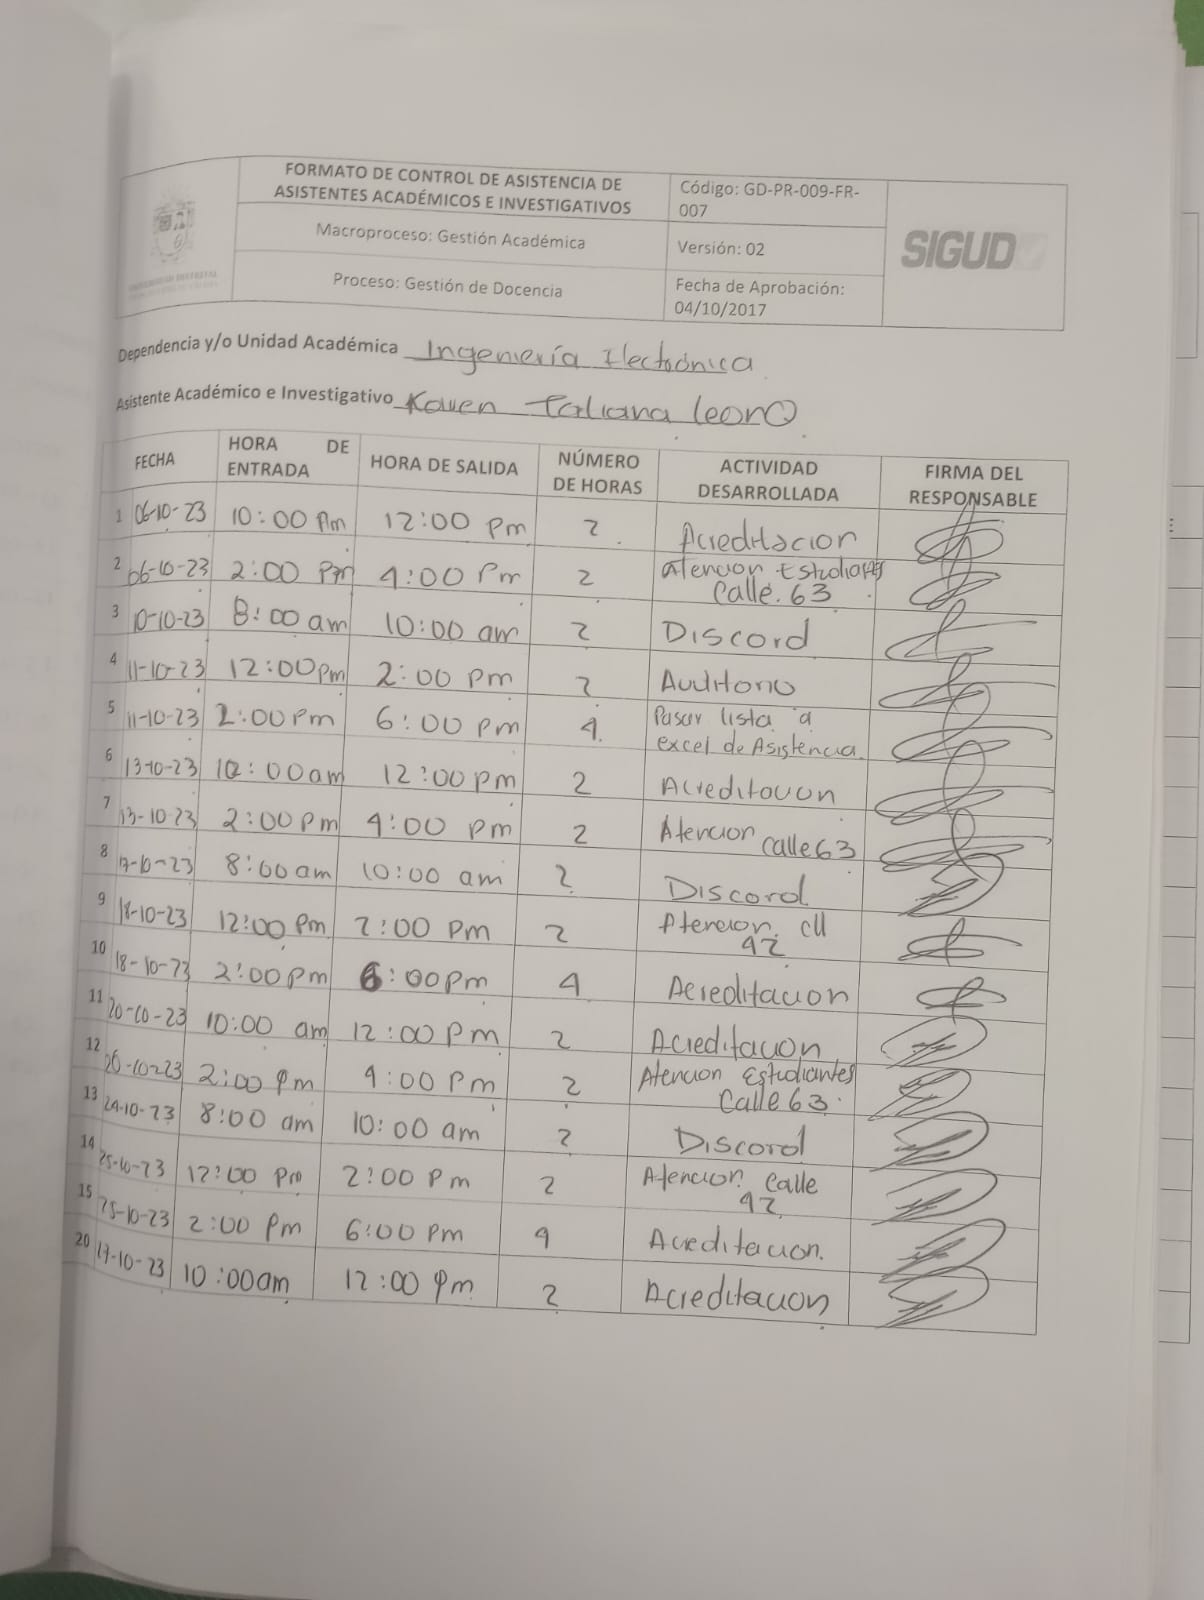 FORMATO DE CONTROL DE ASISTENCIA DE
ASISTENTES ACADÉMICOS E INVESTIGATIVOS
Código: GD-PR-009-FR-
007
Macroproceso: Gestión Académica
Versión: 02
SIGUD
UNIVERSIDAD DISTRITAL
Proceso: Gestión de Docencia
Fecha de Aprobación:
04/10/2017
Dependencia y/o Unidad Académica Ingeniería Electrónica
Asistente Académico e Investigativo Karen Tatiana León
FECHA HORA DE ENTRADA HORA DE SALIDA NÚMERO DE HORAS ACTIVIDAD DESARROLLADA FIRMA DEL RESPONSABLE
1 06-10-23 10:00 Am 12:00 pm 2 Acreditacion
2 06-10-23 2:00 Pm 4:00 Pm 2 Atencion Estudiantes Calle 63
3 10-10-23 8:00 am 10:00 am 2 Discord
4 11-10-23 12:00 pm 2:00 pm 2 Auditorio
5 11-10-23 2:00 pm 6:00 pm 4 Pasar lista a excel de Asistencia
6 13-10-23 10:00 am 12:00 pm 2 Acreditacion
7 13-10-23 2:00 pm 4:00 pm 2 Atencion calle 63
8 17-10-23 8:00 am 10:00 am 2 Discord
9 18-10-23 12:00 Pm 2:00 Pm 2 Atencion cll 42
10 18-10-23 2:00 pm 6:00 pm 4 Acreditacion
11 20-10-23 10:00 am 12:00 pm 2 Acreditacion
12 20-10-23 2:00 pm 4:00 Pm 2 Atencion Estudiantes Calle 63
13 24-10-23 8:00 am 10:00 am 2 Discord
14 25-10-23 12:00 Pm 2:00 Pm 2 Atencion Calle 42
15 25-10-23 2:00 Pm 6:00 Pm 4 Acreditacion.
20 27-10-23 10:00 am 12:00 Pm 2 Acreditacion